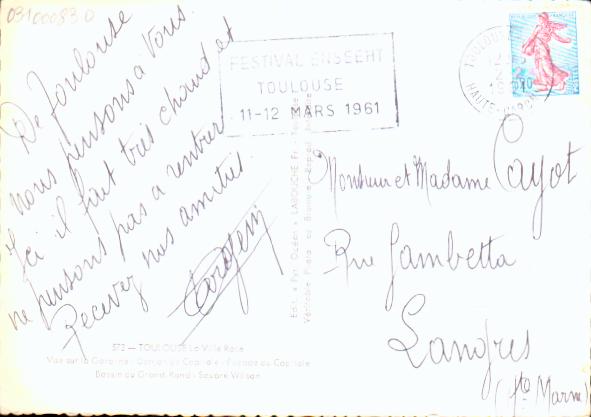 03100083 D
De Toulouse
nous pensons à Vous.
Ici il fait très chaud et
ne pensons pas a rentrer
Recevez nos amitiés.
FESTIVAL ENSEEHT
TOULOUSE
11-12 MARS 1961
TOULOUSE
HAUTE-GARONNE
Monsieur et Madame Cayot
Rue Gambetta
Langres
(Hte Marne)
Edit. « Pyr. Océan » LABOUCHE Fr. Toulouse
Véritable Photo au Bromure
572 — TOULOUSE La Ville Rose
Vue sur la Garonne - Donjon du Capitole - Façade du Capitole
Bassin du Grand Rond - Square Wilson